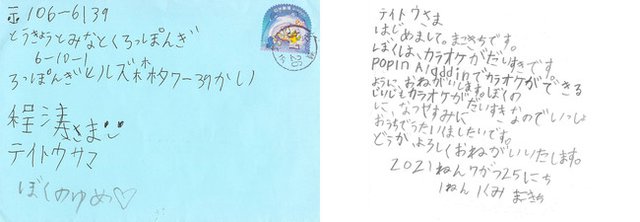 〒106-6139
とうきょうとみなとくろっぽんぎ
6-10-1
ろっぽんぎヒルズ森タワー39かい
程涛さま
テイトウサマ
ぼくのゆめ♡
テイトウさま
はじめまして。まさきちです。
ぼくは、カラオケがだいすきです。
popin AladdinでカラオケができるI
ように、おねがいします。ぼくの
じいじもカラオケがだいすき
なのでいっしょ
に、なつやすみに
おうちでうたいたいです。
どうか、よろしくおねがいいたします。
2021ねん7がつ25にち
1ねん1くみ まさきち